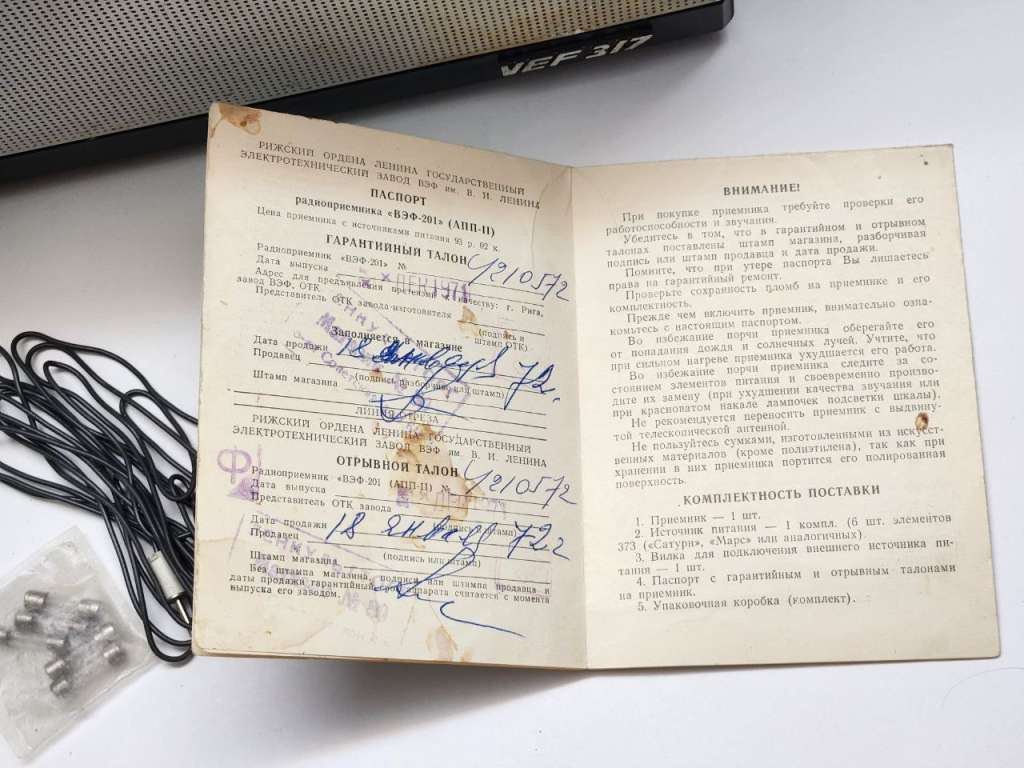 VEF 317
РИЖСКИЙ ОРДЕНА ЛЕНИНА ГОСУДАРСТВЕННЫЙ
ЭЛЕКТРОТЕХНИЧЕСКИЙ ЗАВОД ВЭФ им. В. И. ЛЕНИНА
ПАСПОРТ
радиоприемника «ВЭФ-201» (АПП-II)
Цена приемника с источниками питания 93 р. 02 к.
ГАРАНТИЙНЫЙ ТАЛОН
Радиоприемник «ВЭФ-201» № У210572
Дата выпуска ДЕК 1971
Адрес для предъявления претензий к качеству: г. Рига,
завод ВЭФ, ОТК
Представитель ОТК завода-изготовителя
(подпись и
штамп ОТК)
Заполняется в магазине
Дата продажи 18 января 72 г.
Продавец
(подпись разборчиво или штамп)
Штамп магазина
ЛИНИЯ ОТРЕЗА
РИЖСКИЙ ОРДЕНА ЛЕНИНА ГОСУДАРСТВЕННЫЙ
ЭЛЕКТРОТЕХНИЧЕСКИЙ ЗАВОД ВЭФ им. В. И. ЛЕНИНА
ОТРЫВНОЙ ТАЛОН
Радиоприемник «ВЭФ-201 (АПП-II) № У210572
Дата выпуска
Представитель ОТК завода
Дата продажи 18 января 72 г
Продавец
(подпись или штамп)
Штамп магазина
№ 80
Без штампа магазина, подписи или штампа продавца и
даты продажи гарантийный срок аппарата считается с момента
выпуска его заводом.
ВНИМАНИЕ!
При покупке приемника требуйте проверки его
работоспособности и звучания.
Убедитесь в том, что в гарантийном и отрывном
талонах поставлены штамп магазина, разборчивая
подпись или штамп продавца и дата продажи.
Помните, что при утере паспорта Вы лишаетесь
права на гарантийный ремонт.
Проверьте сохранность пломб на приемнике и его
комплектность.
Прежде чем включить приемник, внимательно озна-
комьтесь с настоящим паспортом.
Во избежание порчи приемника оберегайте его
от попадания дождя и солнечных лучей. Учтите, что
при сильном нагреве приемника ухудшается его работа.
Во избежание порчи приемника следите за со-
стоянием элементов питания и своевременно произво-
дите их замену (при ухудшении качества звучания или
при красноватом накале лампочек подсветки шкалы).
Не рекомендуется переносить приемник с выдвину-
той телескопической антенной.
Не пользуйтесь сумками, изготовленными из искусст-
венных материалов (кроме полиэтилена), так как при
хранении в них приемника портится его полированная
поверхность.
КОМПЛЕКТНОСТЬ ПОСТАВКИ
1. Приемник — 1 шт.
2. Источник питания — 1 компл. (6 шт. элементов
373 («Сатурн», «Марс» или аналогичных).
3. Вилка для подключения внешнего источника пи-
тания — 1 шт.
4. Паспорт с гарантийным и отрывным талонами
на приемник.
5. Упаковочная коробка (комплект).